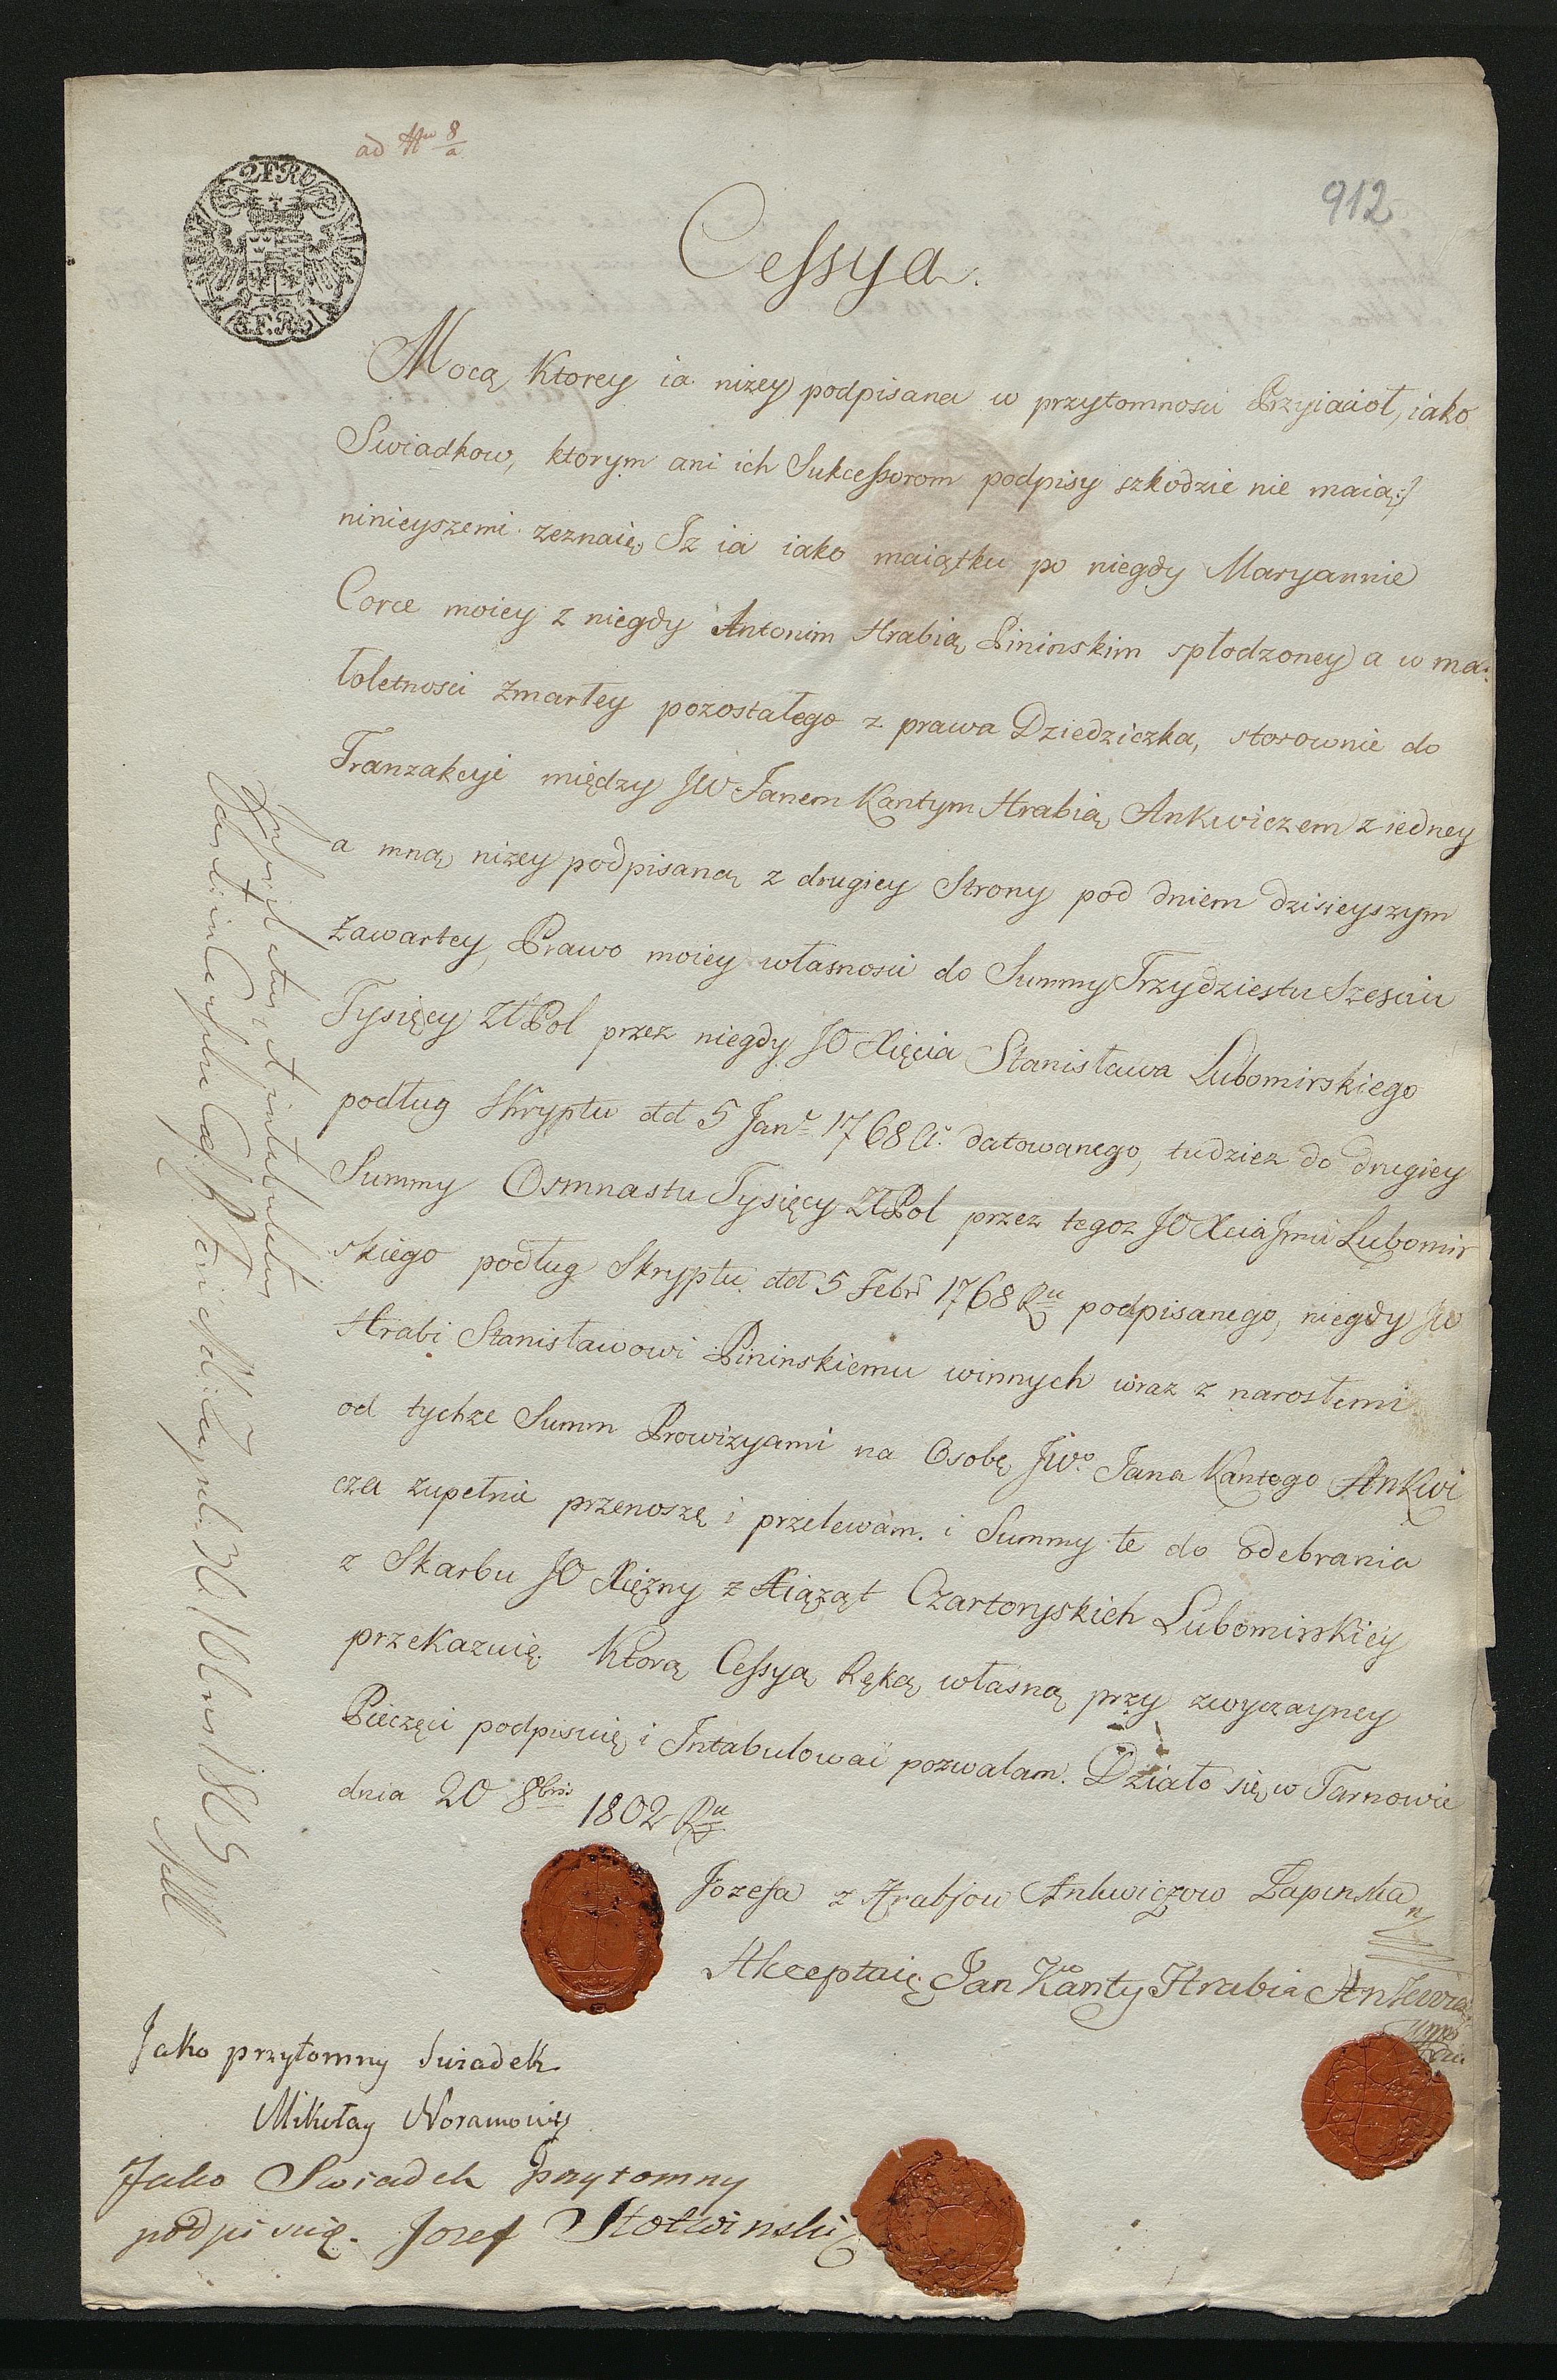 ad Nrū 8/a
912
2 FR
Cessya.
Mocą ktorey ia niżey podpisana w przytomnosci Przyiacioł, iako
Swiadkow, ktorym ani ich Sukcessorom podpisy szkodzić nie maią;
ninieyszemi zeznaię, Iz ia iako maiątku po niegdy Maryannie
Corce moiey z niegdy Antonim Hrabią Pininskim spłodzoney a w ma:
łoletnosci zmarłey pozostałego z prawa Dziedziczka, stosownie do
Tranzakcyi między JW Janem Kantym Hrabią Ankwiczem z iedney
a mną niżey podpisaną z drugiey Strony pod dniem dzisieyszym
zawartey, Prawo moiey własnosci do Summy Trzydziestu Szesciu
Tysięcy ZłPol przez niegdy JO Xięcia Stanisława Lubomirskiego
podług Skryptu dd 5 Janr 1768 a. datowanego, tudzież do drugiey
Summy Osmnastu Tysięcy ZłPol przez tegoz JO Xcia Jmci Lubomir
skiego podług Skryptu dd 5 Febr 1768 Ru podpisanego, niegdy JW
Hrabi Stanisławowi Pininskiemu winnych wraz z narosłemi
od tychże Summ Prowizyami na Osobę JWo. Jana Kantego Ankwi
cza zupełnie przenoszę i przelewam. i Summy te do odebrania
z Skarbu JO Xiężny z Xiążąt Czartoryskich Lubomirskiey
przekazuię. Którą Cessyą Ręką własną przy zwyczayney
Pieczęci podpisuię i Intabulować pozwalam. Działo się w Tarnowie
dnia 20 8bris 1802 Ru
Jozefa z Hrabjow Ankwiczow Łapinska
Akceptuię Jan Kanty Hrabia Ankwicz
Jako przytomny Swiadek
Mikołay
Jako Swiadek przytomny
podpisuię. Jozef Stotwinski
et intabuletur
1803